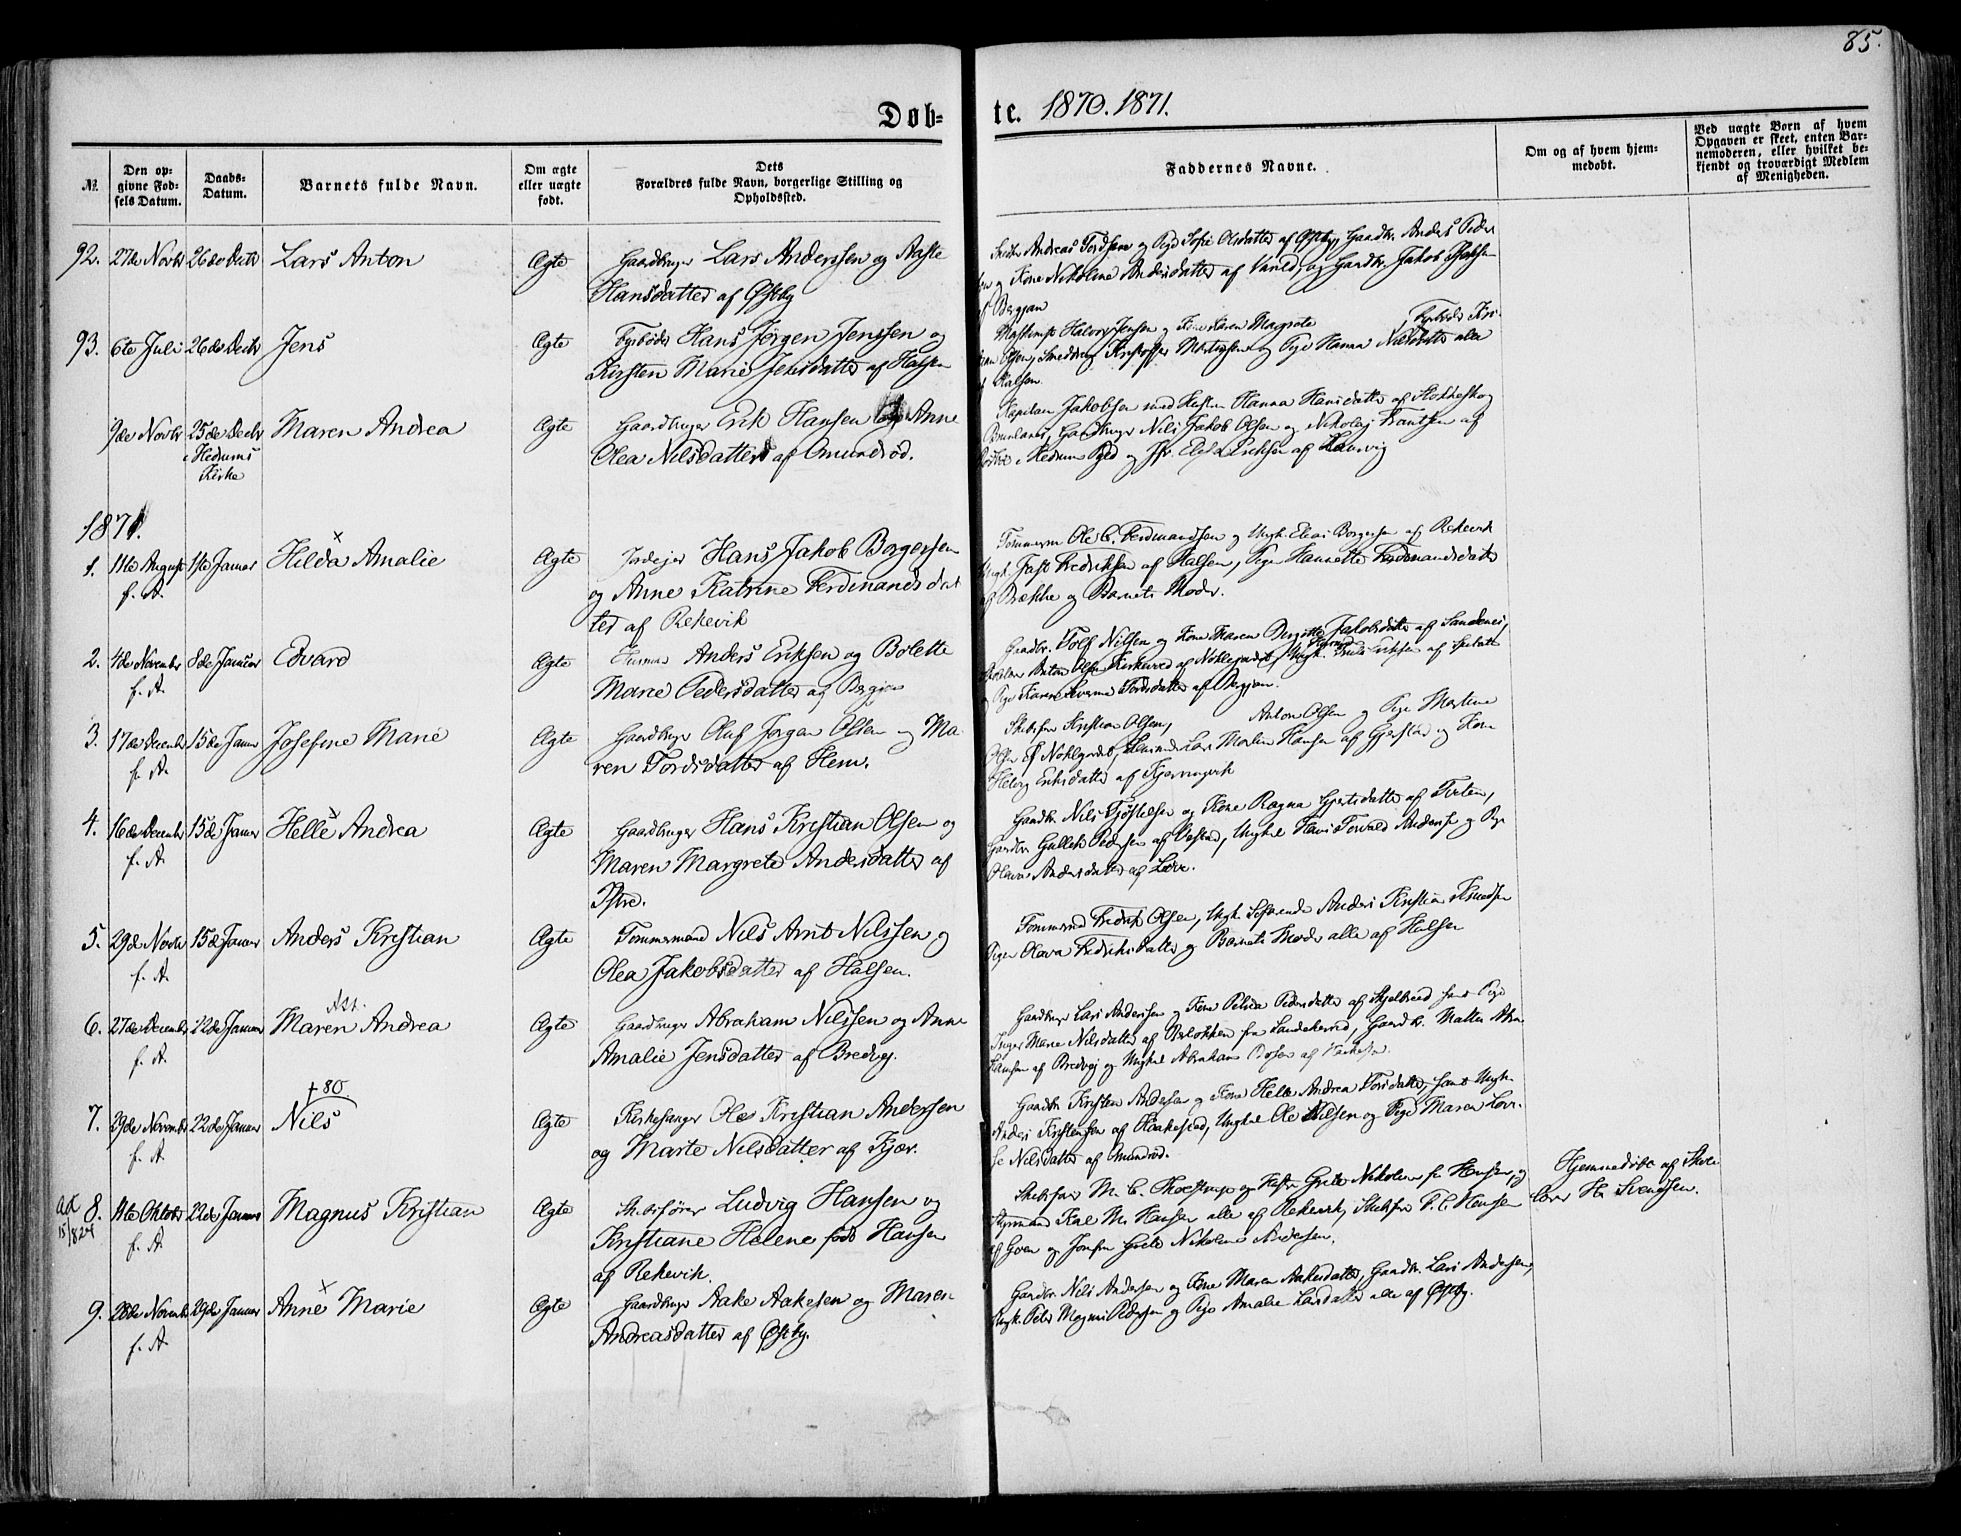 85.
Døb-
te. 1870. 1871.
№
Den op-
givne Fød-
sels Datum.
Daabs-
Datum.
Barnets fulde Navn.
Om ægte
eller uægte
født.
Dets
Forældres fulde Navn, borgerlige Stilling og
Opholdssted.
Faddernes Navne.
Om og af hvem hjem-
medøbt.
Ved uægte Børn af hvem
Opgaven er skeet, enten Bar-
nemoderen, eller hvilket be-
kjendt og troværdigt Medlem
af Menigheden.
92. 27de Novbr 26de Decbr Lars Anton Ægte Gaardbruger Lars Anderssen og Aaste
Hansdatter af Østby
Andreas Tordsen og Pige Sofie Olsdatter af Østby, Gaardbr. Anders Peder
sen og Kone Nikoline Andersdatter af Varild, og Gaardbr. Jakob
af Bergjan
93. 6te Juli 26de Decbr Jens Ægte Fyrbøder Hans Jørgen Jenssen og
Kirsten Marie Jensdatter af Halsen
Maskinist Halvor Jensen og Kone Karen Magrete Fyrbøder Kri-
Kristoffer Martinsen og Pige Hanna Nilsdatter alle
af Halsen.
9de Novbr 25de Decbr Maren Andrea Ægte Gaardbruger Erik Hansen og Anne
i Hedrums
Kirke
Olea Nilsdatter af Omundrød.
Kaptein Jakobsen med Hustru Hanna Hansdatter af Stokkeskog
Brunlanes, Gaardbruger Nils Jakob Olsen og Nikolai Frantzen af
i Hedrum Pgd og Jfr. Eriksen af Laurvig
1871.
1. 11te August 1ste Januar Hilda Amalie Ægte Jordeier Hans Jakob Borgersen
f. A.
og Anne Katrine Ferdinandsdat
ter af Rekevik
Tømmerm Ole C. Ferdinandsen og Ungk. Elias Borgersen af Rekevik
Ungk. Fredriksen af Halsen, Pige Hannette Ferdinandsdatter
af Brække og Barnets Moder.
2. 4de November 8de Januar Edvard Ægte Anders Eriksen og Bolette
f. A.
Marie Pedersdatter af Bergjan
Gaardbr. Tolf Nilsen og Kone Karen Bergitte Jakobsdatter af Sandenes,
Anton Olsen af Noklegaard, Ungk. Eriksen af
og Pige Karen Tordsdatter af Bergjan.
3. 17de Decembr 15de Januar Josefine Marie Ægte Gaardbruger Oluf Jørgen Olsen og Ma-
f. A.
ren Tordsdatter af Hem.
Skibsfører Kristian Olsen, Anton Olsen og Pige Martine
Olsen af Noklegaard, Lars Martin Hansen af Gjerstad og Kone
Helvig Eriksdatter af Kjerringvik
4. 16de Decembr 15de Januar Helle Andrea Ægte Gaardbruger Hans Kristian Olsen og
f. A.
Maren Margrete Andersdatter af
Istre.
Gaardbr. Nils Tjøstelsen og Kone Ragna Gjertsdatter af Tveten,
Gaardbr Gullek Pedersen af Vestad, Ungkl Hans Torvald Andersen og Pige
Olava Andersdatter af Løve.
5. 29de Novbr 15de Januar Anders Kristian Ægte Tømmermand Nils Arnt Nilssen og
f. A.
Olea Jakobsdatter af Halsen.
Tømmermd Fredrik Olsen, Ungk. Søfarende Anders Kristian Knudsen
Pigen Olava Fredriksdatter og Barnets Moder alle af Halsen
6. 27de Decembr 22de Januar Maren Andrea Ægte Gaardbruger Abraham Nilssen og Anne
Att.
f. A.
Amalie Jensdatter af Bredvej.
Gaardbruger Lars Anderssen og Kone Petrea Pedersdatter af Skjelbred samt Pige
Inger Marie Nilsdatter af fra Sandeherred, Gaardbr. Mattis Abra
hamsen af Bredvej og Ungkl Abraham
7. 29de Novembr 22de Januar Nils Ægte Kirkesanger Ole Kristian Andersen
+80
f. A.
og Marte Nilsdatter af Kjær.
Gaardbr Kristen Andersen og Kone Helle Andrea Torsdatter, samt Ungk.
Anders Kristensen af Haakestad, Ungkl Ole Nilsen og Pige Maren Lovi-
se Nilsdatter af Amundrød.
ad
15/824
8. 11te Oktobr 22de Januar Magnus Kristian Ægte Skibsfører Ludvig Hansen og
f. A.
Kristiane Helene født Hansen
af Rekevik.
Skibsfører M. C. og Hustru Grete Nikoline f. Hansen, og
Styrmand Karl M. Hansen alle af Rekevik, Skibsfører P. C. Hansen
af Goen og Jomfru Grete Nikoline Andersen.
Hjemmedøbt af Skole
lærer H. Svendsen.
9. 28de Novembr 29de Januar Anne Marie Ægte Gaardbruger Aake Aakesen og Maren
f. A.
Andreasdatter af Østby.
Gaardbr. Nils Andersen og Kone Maren Aakesdatter, Gaardbr. Lars Andersen,
Ungk. Peter Magnus Pedersen og Pige Amalie Larsdatter alle af Østby.